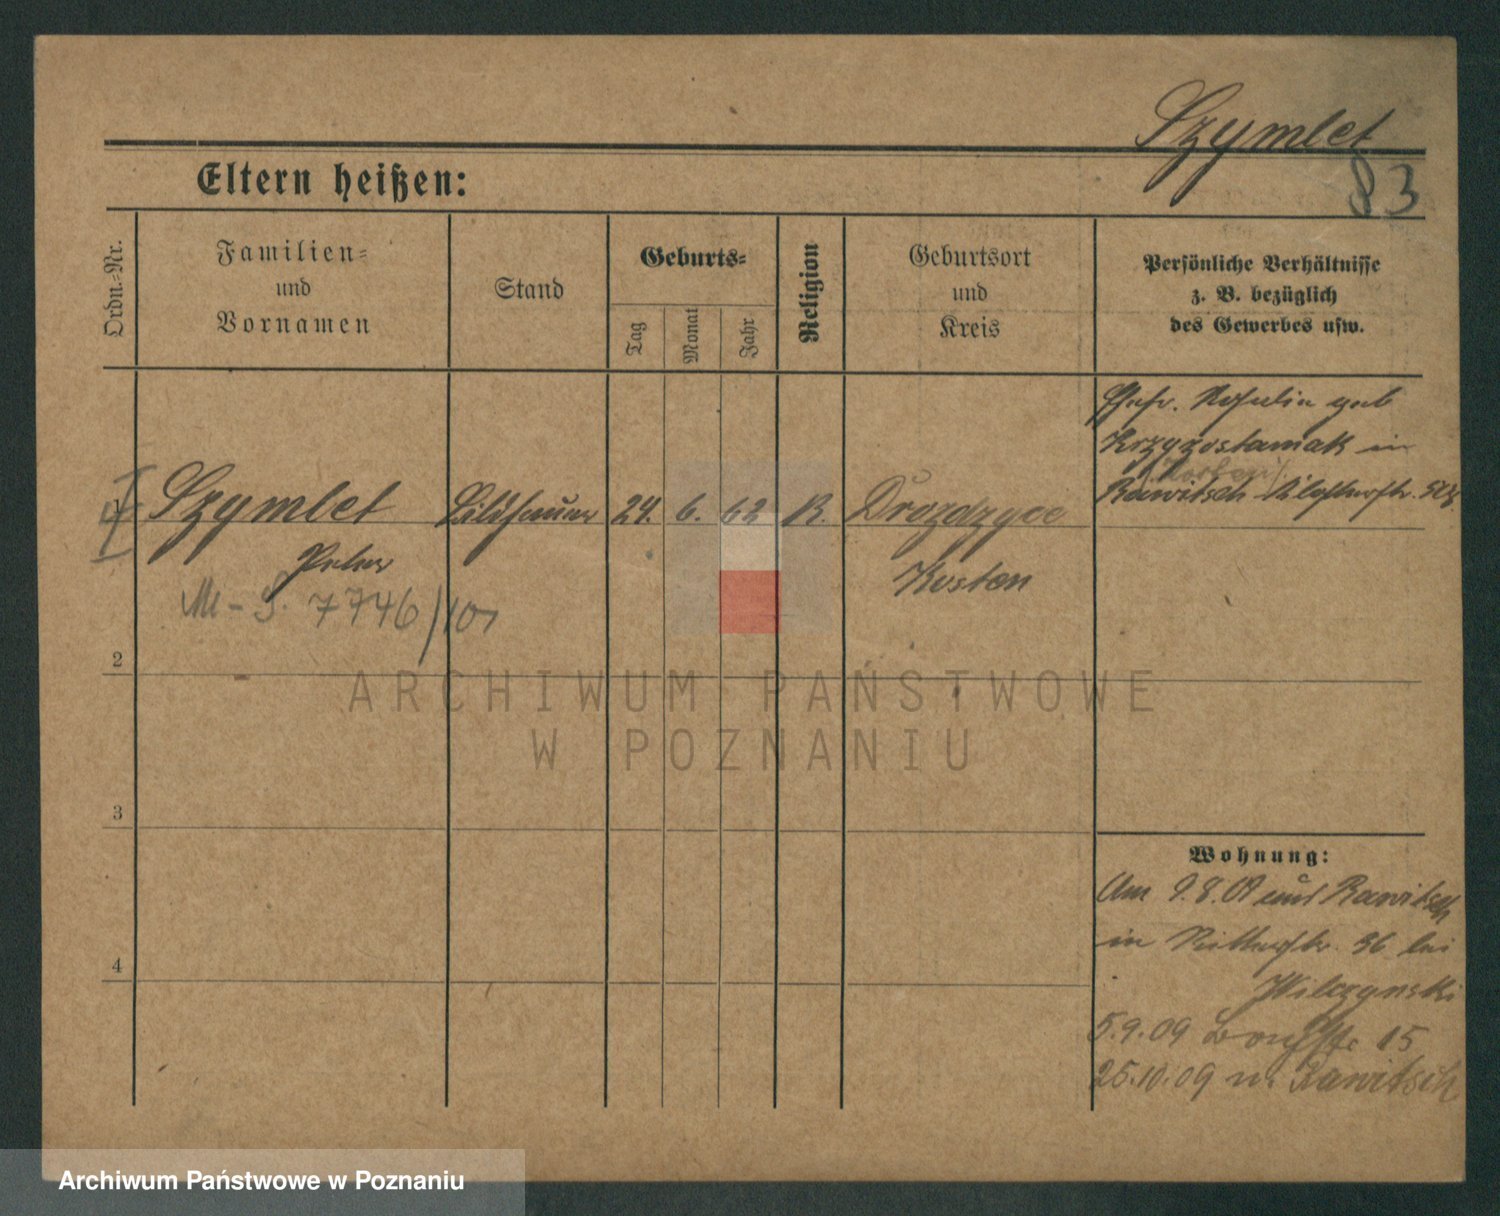 Szymlet
83
Eltern heißen:
Ordn.-Nr.
Familien-
und
Vornamen
Stand
Geburts-
Tag
Monat
Jahr
Religion
Geburtsort
und
Kreis
Persönliche Verhältnisse
z. B. bezüglich
des Gewerbes usw.
Ehefr. Rosalia geb
Krzyzostaniak in
Rawitsch
1
Szymlet
Bildhauer
24.
6.
62
K.
Drozdzyce
Peter
Kosten
7746/10
2
3
4
Wohnung:
Am 9.8.09 aus Rawitsch
in Ritterstr. 36 bei
Wilczynski
5.9.09 15
25.10.09 n. Rawitsch
ARCHIWUM PAŃSTWOWE
W POZNANIU
Archiwum Państwowe w Poznaniu